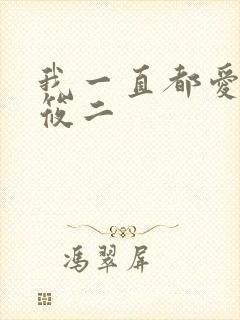 我一直都愛
筱二
馮翠屏